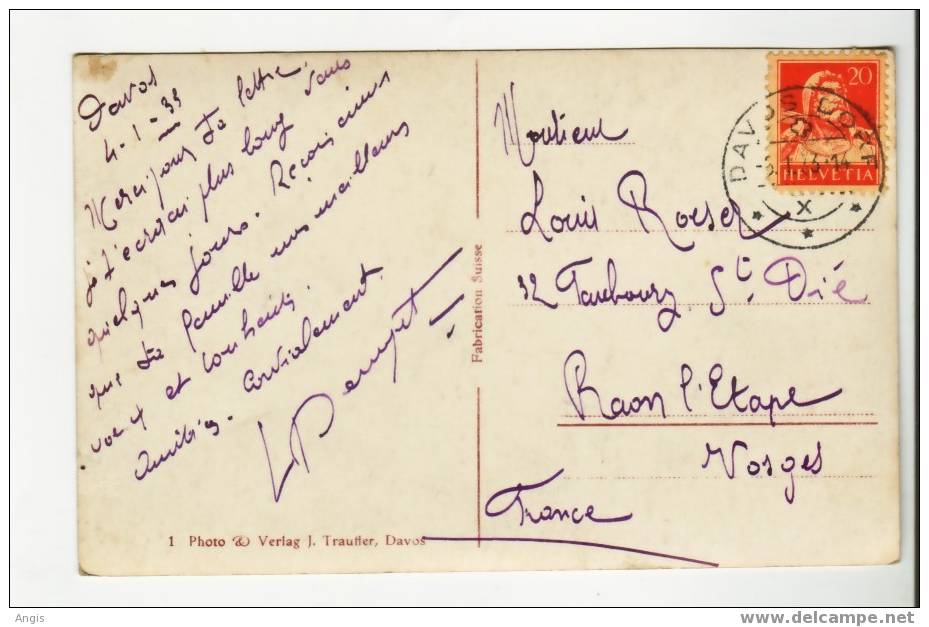 Davos
4-1-33
Merci pour ta lettre.
je t'écrirai plus long dans
quelques jours. Reçois ainsi
que ta famille mes meilleurs
voeux et souhaits.
Amitiés. Cordialement.
Monsieur
Louis Roeser
32 Faubourg St. Dié
Raon l'Etape
Vosges
France
Fabrication Suisse
1 Photo & Verlag J. Trauffer, Davos
20
HELVETIA
DAVOS DORF
X
Angis
www.delcampe.net